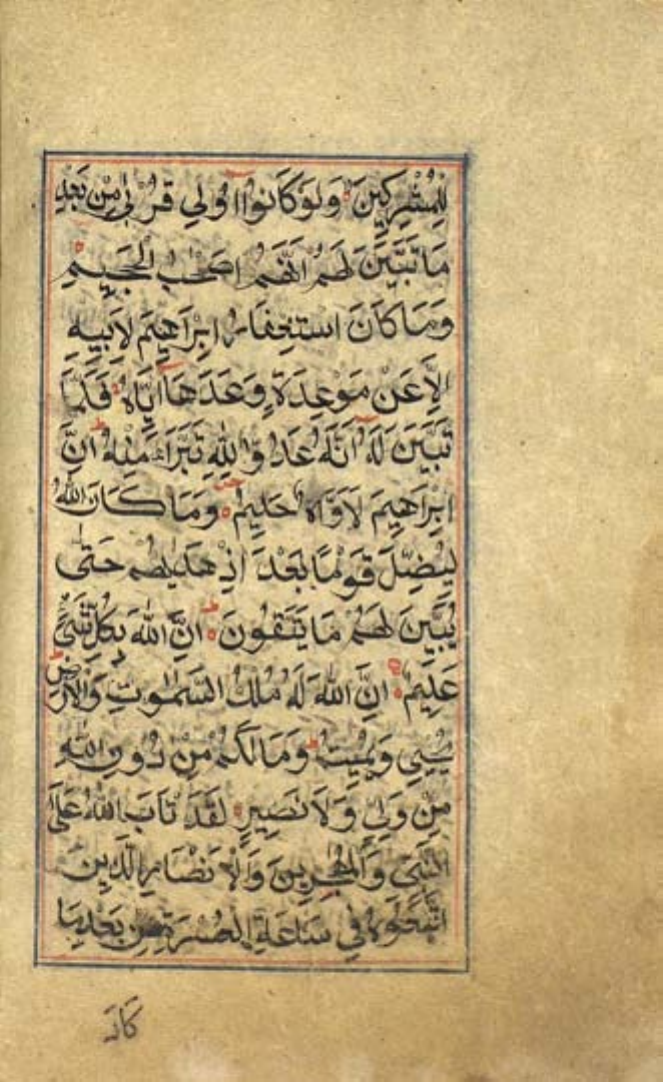 لِلْمُشْرِكِينَ وَلَوْ كَانُوا اُولِي قُرْبٰى مِنْ بَعْدِ
مَا تَبَيَّنَ لَهُمْ اَنَّهُمْ اَصْحٰبُ الْجَحِيمِ
وَمَا كَانَ اسْتِغْفَارُ اِبْرَاهِيمَ لِاَبِيهِ
اِلَّا عَنْ مَوْعِدَةٍ وَعَدَهَا اِيَّاهُ فَلَمَّا
تَبَيَّنَ لَهُ اَنَّهُ عَدُوٌّ لِلّٰهِ تَبَرَّاَ مِنْهُ اِنَّ
اِبْرَاهِيمَ لَاَوَّاهٌ حَلِيمٌ وَمَا كَانَ اللّٰهُ
لِيُضِلَّ قَوْمًا بَعْدَ اِذْ هَدٰيهُمْ حَتّٰى
يُبَيِّنَ لَهُمْ مَا يَتَّقُونَ اِنَّ اللّٰهَ بِكُلِّ شَيْءٍ
عَلِيمٌ اِنَّ اللّٰهَ لَهُ مُلْكُ السَّمٰوٰتِ وَالْاَرْضِ
يُحْيِي وَيُمِيتُ وَمَا لَكُمْ مِنْ دُونِ اللّٰهِ
مِنْ وَلِيٍّ وَلَا نَصِيرٍ لَقَدْ تَابَ اللّٰهُ عَلَى
النَّبِيِّ وَالْمُهٰجِرِينَ وَالْاَنْصَارِ الَّذِينَ
اتَّبَعُوهُ فِي سَاعَةِ الْعُسْرَةِ مِنْ بَعْدِ مَا
كَادَ